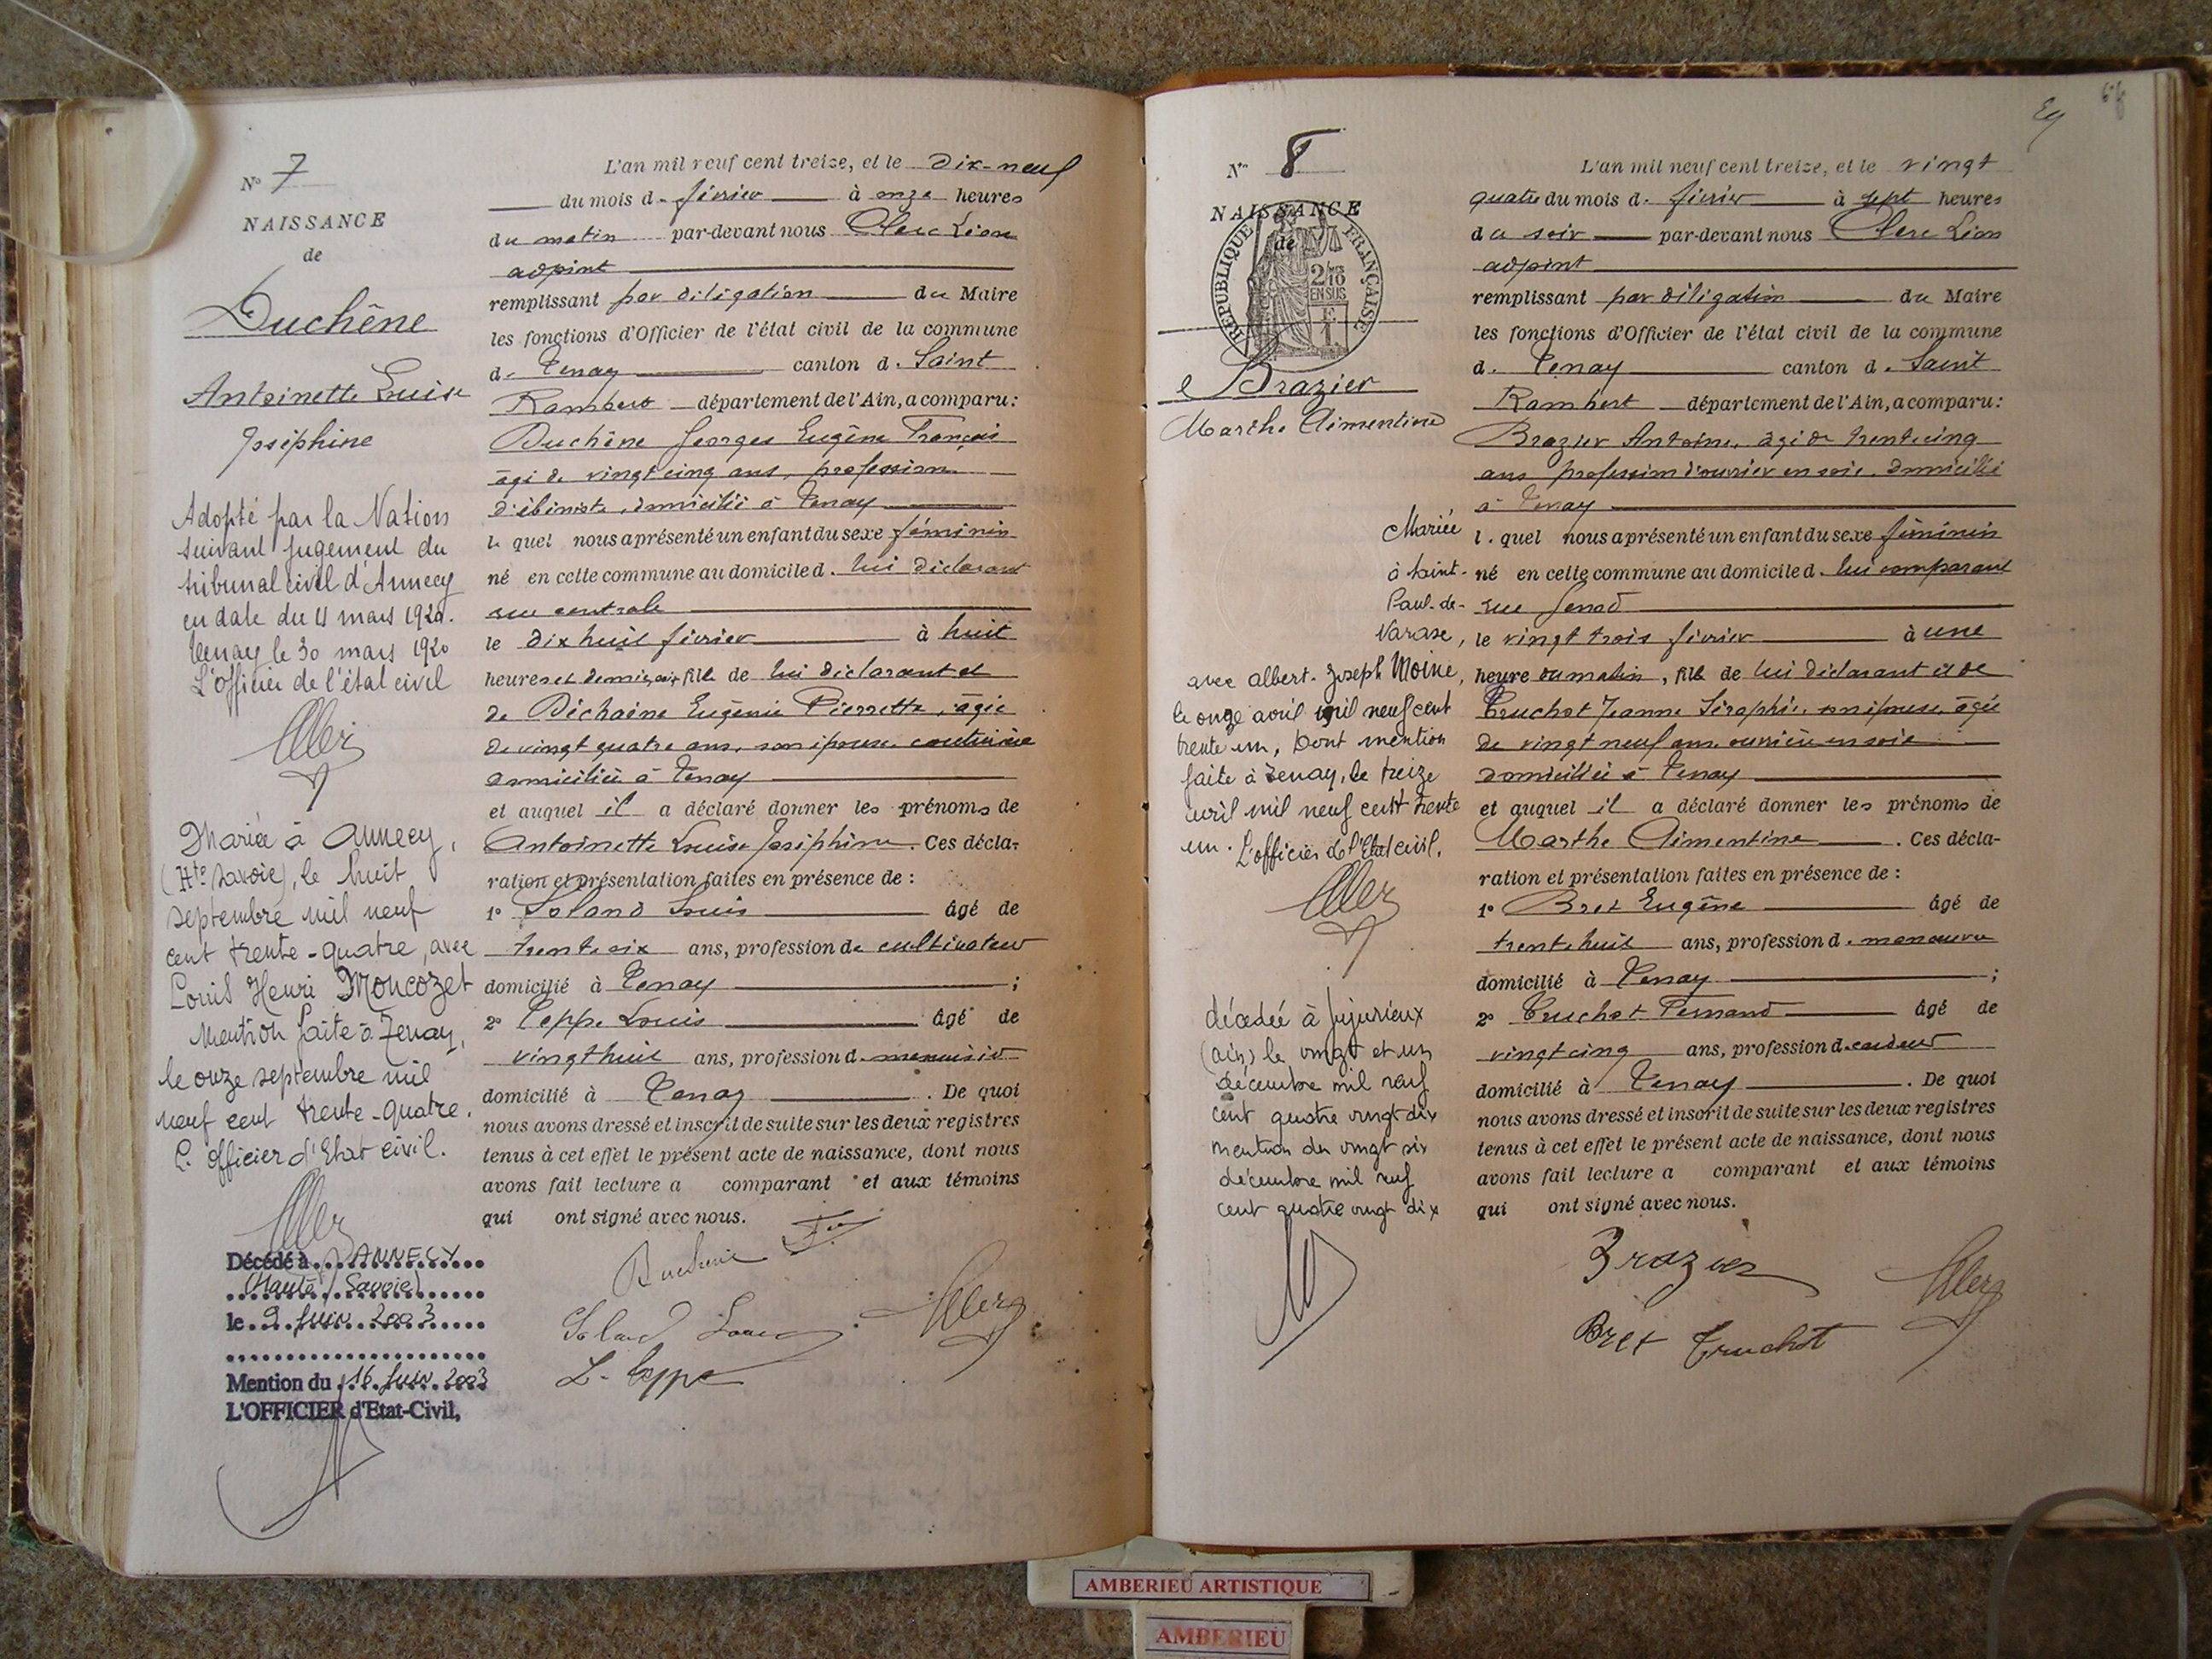 N° 7
NAISSANCE
de
Duchêne
Antoinette Louise
Joséphine
Adopté par la Nation
suivant jugement du
tribunal civil d'Annecy
en date du 4 mars 1920.
Tenay le 30 mars 1920
L'officier de l'état civil
Mariée à Annecy,
(Hte Savoie), le huit
septembre mil neuf
cent trente-quatre, avec
Louis Henri Moncozet
Mention faite à Tenay,
le onze septembre mil
neuf cent trente-quatre.
L'officier d'Etat civil.
Décédé à ANNECY
(Haute Savoie)
le 9 Juin 2003
Mention du 16 Juin 2003
L'OFFICIER d'Etat-Civil,
L'an mil neuf cent treize, et le dix-neuf
du mois de février à onze heures
du matin par-devant nous Clerc Léon
adjoint
remplissant par délégation du Maire
les fonctions d'Officier de l'état civil de la commune
de Tenay canton de Saint
Rambert département de l'Ain, a comparu :
Duchêne Georges Eugène François
âgé de vingt cinq ans, profession
d'ébéniste, domicilié à Tenay
le quel nous a présenté un enfant du sexe féminin
né en cette commune au domicile de lui déclarant
rue centrale
le dix huit février à huit
heures et demie, soir, fille de lui déclarant et
de Déchaine Eugénie Pierrette, âgée
de vingt quatre ans, son épouse, couturière
domiciliée à Tenay
et auquel il a déclaré donner les prénoms de
Antoinette Louise Joséphine. Ces décla-
ration et présentation faites en présence de :
1° Soland Louis âgé de
trente six ans, profession de cultivateur
domicilié à Tenay ;
2° Teppe Louis âgé de
vingt huit ans, profession de menuisier
domicilié à Tenay. De quoi
nous avons dressé et inscrit de suite sur les deux registres
tenus à cet effet le présent acte de naissance, dont nous
avons fait lecture a comparant et aux témoins
qui ont signé avec nous.
Duchêne
Soland Louis
Clerc
L. Teppe
N° 8
NAISSANCE
de
RÉPUBLIQUE FRANÇAISE
2/10
EN SUS
Brazier
Marthe Aimentine
Mariée
à Saint-
Paul-de-
Varax,
avec Albert-Joseph Moine,
le onze avril mil neuf cent
trente un, Dont mention
faite à Tenay, le treize
avril mil neuf cent trente
un. L'officier de l'Etat civil,
Clerc
décédée à Jujurieux
(ain) le vingt et un
décembre mil neuf
cent quatre vingt dix
mention du vingt six
décembre mil neuf
cent quatre vingt dix
L'an mil neuf cent treize, et le vingt
quatre du mois de février à sept heures
du soir par-devant nous Clerc Léon
adjoint
remplissant par délégation du Maire
les fonctions d'Officier de l'état civil de la commune
de Tenay canton de Saint
Rambert département de l'Ain, a comparu :
Brazier Antoine, âgé de trente cinq
ans profession d'ouvrier en soie, domicilié
à Tenay
le quel nous a présenté un enfant du sexe féminin
né en cette commune au domicile de lui comparant
rue
le vingt trois février à une
heure du matin, fille de lui déclarant et de
Truchot Jeanne Séraphie, son épouse, âgée
de vingt neuf ans, ouvrière en soie
domiciliée à Tenay
et auquel il a déclaré donner les prénoms de
Marthe Aimentine. Ces décla-
ration et présentation faites en présence de :
1° Bret Eugène âgé de
trente huit ans, profession de manœuvre
domicilié à Tenay ;
2° Truchot Fernand âgé de
vingt cinq ans, profession de cardeur
domicilié à Tenay. De quoi
nous avons dressé et inscrit de suite sur les deux registres
tenus à cet effet le présent acte de naissance, dont nous
avons fait lecture a comparant et aux témoins
qui ont signé avec nous.
Brazier
Clerc
Bret Truchot
AMBERIEU ARTISTIQUE
AMBERIEU